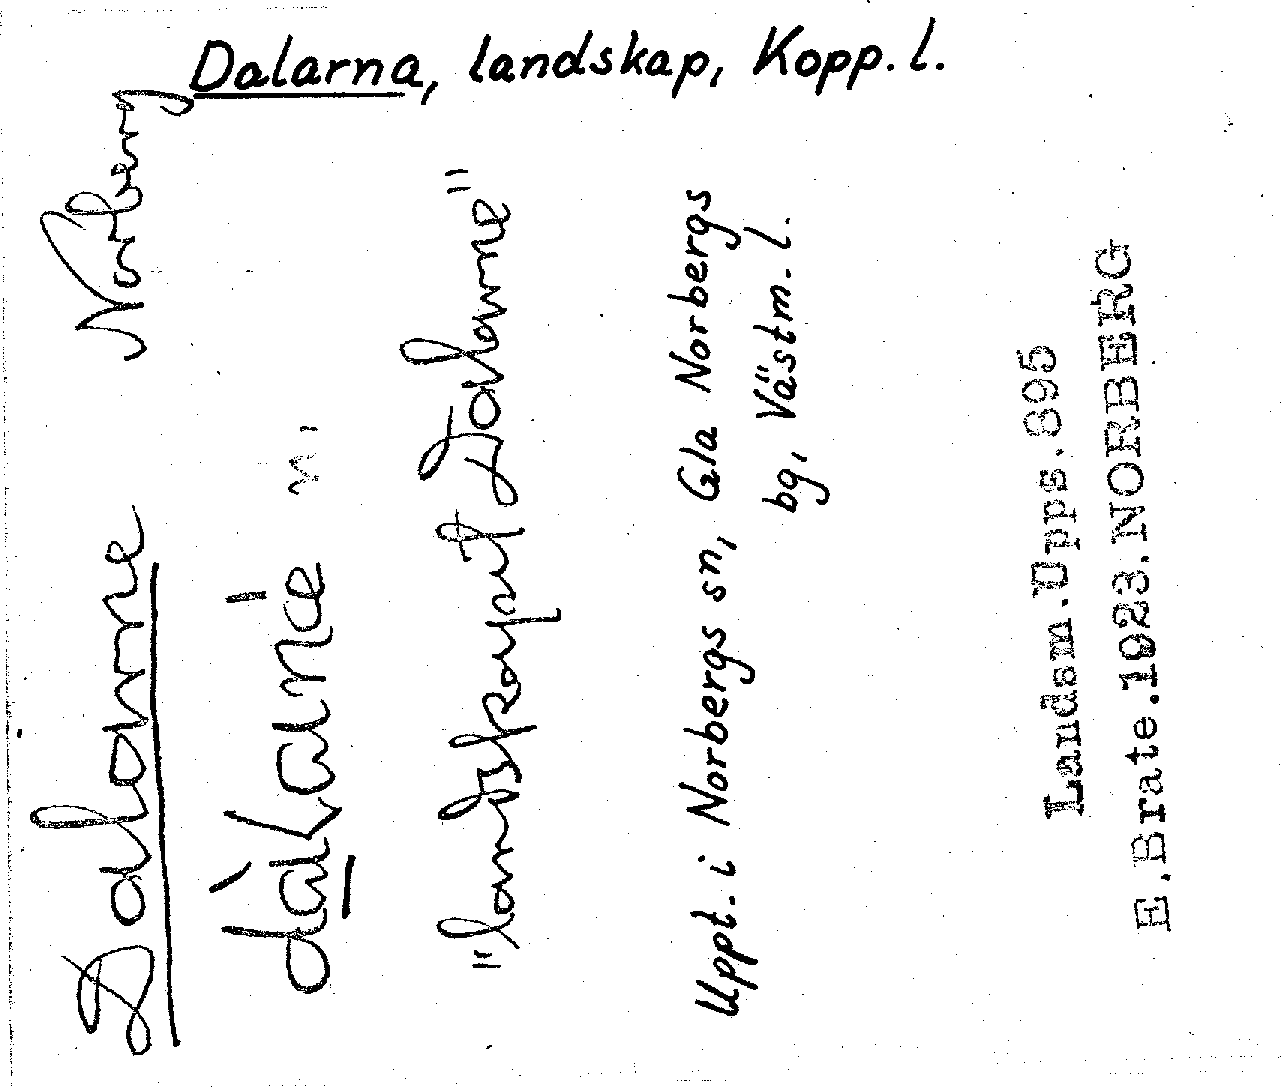 Dalarna, landskap, Kopp. l.
Dalarne Norberg
dàlarne n.
"landskapet Dalarne"
Uppt. i Norbergs sn, Gla Norbergs
bg, Västm. l.
Landsm.Upps.895
E.Brate.1923.NORBERG